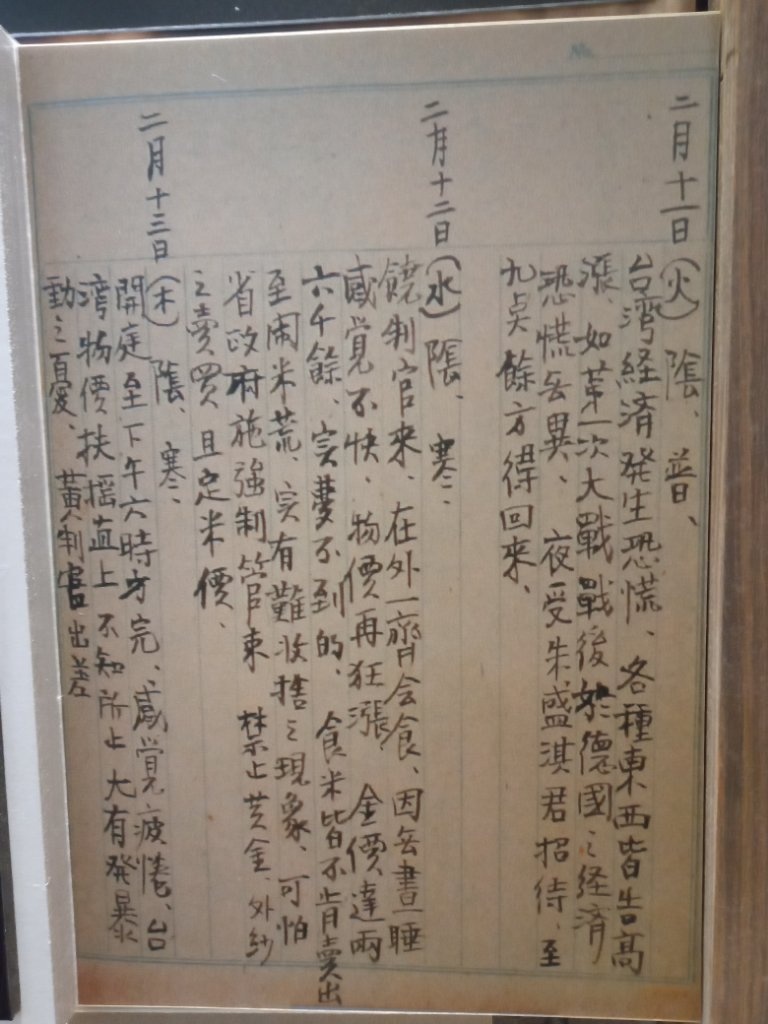 二月十一日(火) 陰、普、
台湾経済発生恐慌、各種東西皆告高
漲、如第一次大戰戰後於德國之経済
恐慌無異、夜受朱盛淇君招待、至
九点餘方得回來、
二月十二日(水) 陰、寒、
饒制官來、在外一齊会食、因無晝睡
感覚不快、物價再狂漲 金價達兩
六千餘、实夢不到的、食米皆不肯賣出
至鬧米荒、实有難收捨之現象、可怕
省政府施強制管束 禁止黄金、外鈔
之賣買 且定米價、
二月十三日(木) 陰、寒、
開庭至下午六時方完、感覚疲惓、台
湾物價扶摇直上 不知所止 大有発暴
動之憂、黄制官出差